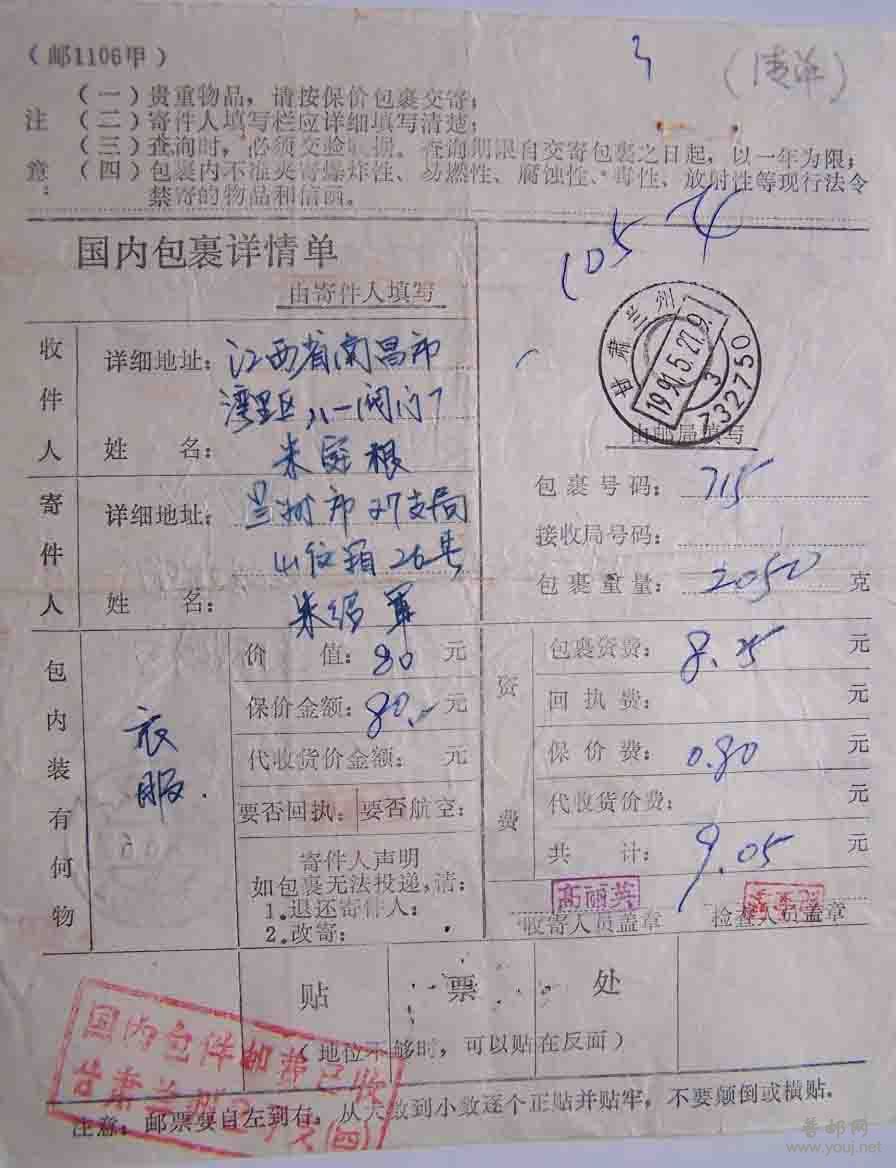 （邮1106甲）
（清洋）
注意：
（一）贵重物品，请按保价包裹交寄；
（二）寄件人填写栏应详细填写清楚；
（三）查询时，必须交验收据。查询期限自交寄包裹之日起，以一年为限；
（四）包裹内不准夹寄爆炸性、易燃性、腐蚀性、毒性、放射性等现行法令
禁寄的物品和信函。
国内包裹详情单
由寄件人填写
105
甘肃兰州
1991.5.27.9.
3
732750
收件人
详细地址：江西省南昌市
湾里区八一阀门厂
姓 名：朱
寄件人
详细地址：兰州市27支局
信箱26号
姓 名：朱绍军
由邮局填写
包裹号码：715
接收局号码：
包裹重量：2050克
包内装有何物
衣服.
价 值：80元
保价金额：80.元
代收货价金额：元
要否回执：要否航空：
寄件人声明
如包裹无法投递，请：
1.退还寄件人：
2.改寄：
资费
包裹资费：8.25元
回执费：元
保价费：0.80元
代收货价费：元
共 计：9.05元
高丽英
收寄人员盖章 检查人员盖章
贴 票 处
（地位不够时，可以贴在反面）
国内包件邮费已收
甘肃兰州27支(四)
注意：邮票要自左到右，从大数到小数逐个正贴并贴牢，不要颠倒或横贴.
普邮网
www.youj.net